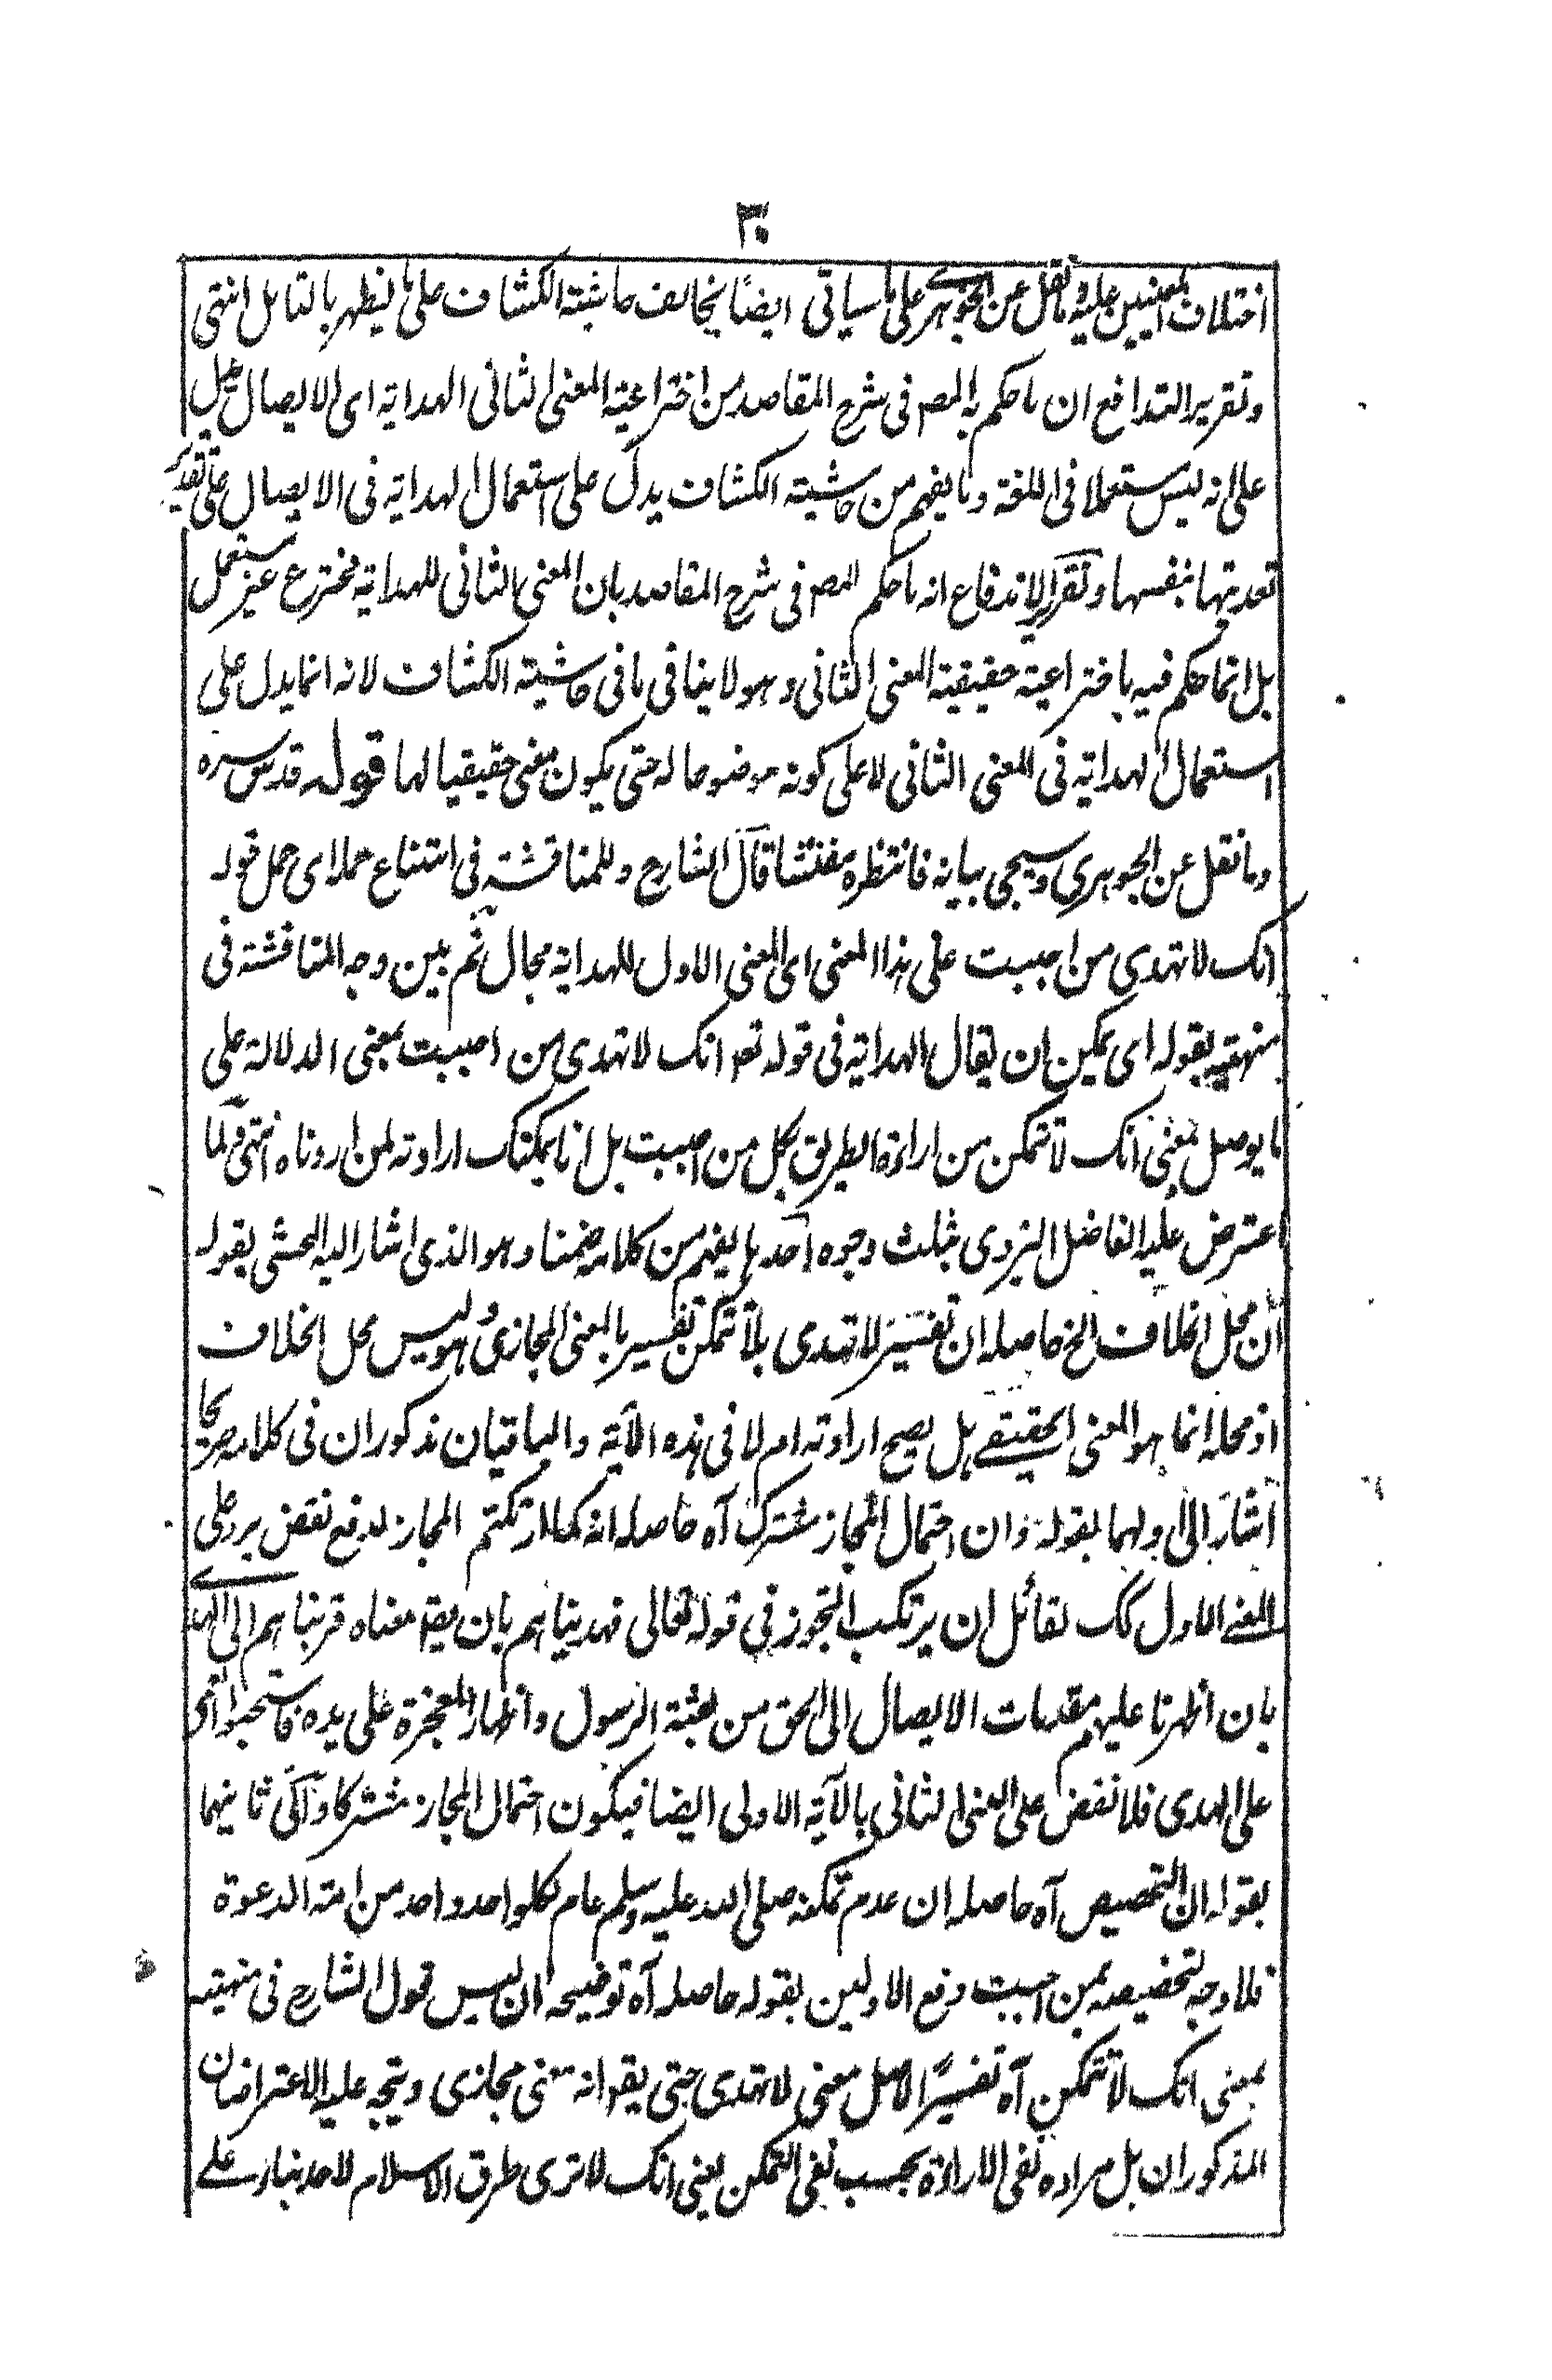 ٣٠
اختلاف المعنيين عليه وما نقل عن الجوهري على ما سياتى ايضًا يخالف حاشية الكشاف على ما يظهر بالتامل انتهى
وتقرير التدافع ان ما حكم به المص فى شرح المقاصد من اختراعية المعنى الثانى الهداية اى الايصال يدل
على انه ليس مستعملا فى اللغة وما يفهم من حاشية الكشاف يدل على استعمال الهداية فى الايصال على تقدير
تعديتها بنفسها وتقرير الاندفاع انه ما حكم المص فى شرح المقاصد بان المعنى الثانى للهداية مخترع غير مستعمل
بل انما حكم فيه باختراعية حقيقية المعنى الثانى وهو لا ينافى ما فى حاشية الكشاف لانه انما يدل على
استعمال الهداية فى المعنى الثانى لا على كونه موضوعا له حتى يكون معنى حقيقيا لها قوله قدس سره
وما نقل عن الجوهرى وسيجى بيانه فانتظره مفتشا قال الشارح وللمناقشة فى امتناع حملا اى حمل قوله
انك لا تهدى من احببت على هذا المعنى اى المعنى الاول للهداية مجال ثم بين وجه المناقشة فى
منهيته بقوله اى يمكن ان يقال الهداية فى قوله تعه انك لا تهدى من احببت بمعنى الدلالة على
ما يوصل بمعنى انك لا تتمكن من اراءة الطريق لكل من احببت بل انما يمكنك اراءته لمن اردناه انتهى ولما
اعترض عليه الفاضل اليزدى بثلث وجوه احدها يفهم من كلامه ضمنا وهو الذى اشار اليه المحشى بقوله
ان محل الخلاف الخ حاصله ان تفسير لا تهدى بلا تتمكن تفسير بالمعنى المجازى وهو ليس محل الخلاف
اذ محله انما هو المعنى الحقيقے هل يصح ارادته ام لا فى هذه الآية والباقيان مذكوران فى كلامه صريحا
اشار الى اولهما بقوله وان احتمال المجاز مشترك آه حاصله انه كما ارتكبتم المجاز لدفع نقض يرد على
المعنے الاول كك لقائل ان يرتكب التجوز فى قوله تعالى فهديناهم بان يقه معناه قربناهم الى الهدے
بان اظهرنا عليهم مقدمات الايصال الى الحق من بعثة الرسول واظهار المعجزة على يده فاستحبوا العمى
على الهدى فلا نقض على المعنى الثانى بالآية الاولى ايضا فيكون احتمال المجاز مشتركا والى ثانيهما
بقوله ان التخصيص آه حاصله ان عدم تمكنه صلى الله عليه وسلم عام لكل واحد واحد من امة الدعوة
فلا وجه لتخصيصه بمن احببت دفع الاولين بقوله حاصله آه توضيحه ان ليس قول الشارح فى منهيته
بمعنى انك لا تتمكن آه تفسيرًا لاصل معنى لا تهدى حتى يقه انه معنى مجازى ويتجه عليه الاعتراضان
المذكوران بل مراده نفى الاراءة بحسب نفى التمكن يعنى انك لا ترى طرق الاسلام لاحد بناء علے